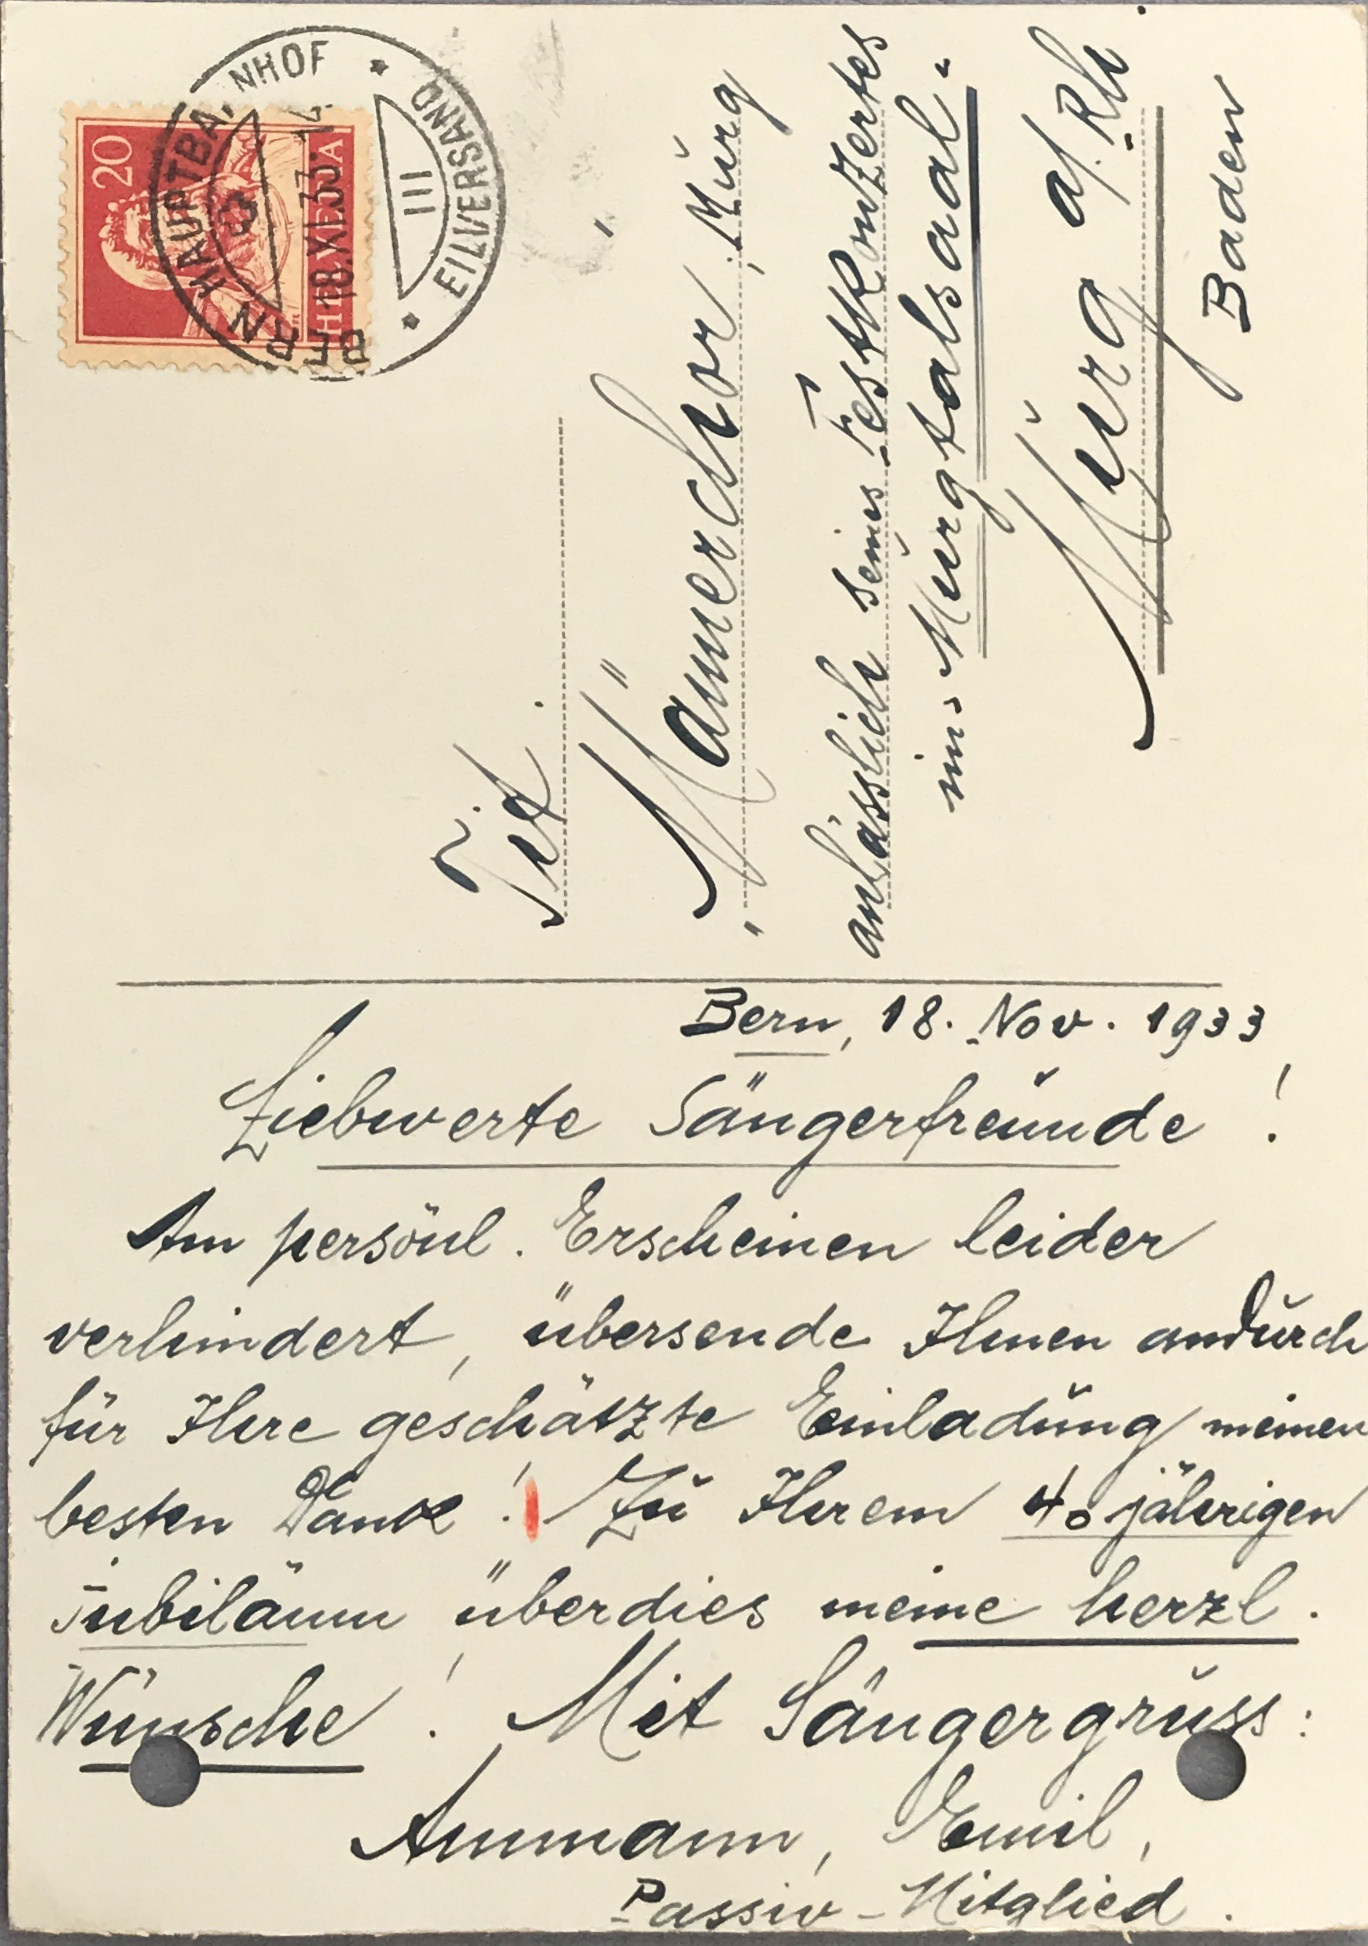 20
HELVETIA
BERN HAUPTBAHNHOF
18.XI.33.
III
EILVERSAND
Tit.
"Männerchor, Murg"
anlässlich seines Festkonzertes
im "Murgtalsaal"
Murg a/. Rh.
Baden
Bern, 18. Nov. 1933
Liebwerte Sängerfreunde!
Am persönl. Erscheinen leider
verhindert, übersende Ihnen andurch
für Ihre geschätzte Einladung meinen
besten Dank! Zu Ihrem 40 jährigen
Jubiläum überdies meine herzl.
Wünsche! Mit Sängergruss:
Ammann, Emil,
Passiv-Mitglied.